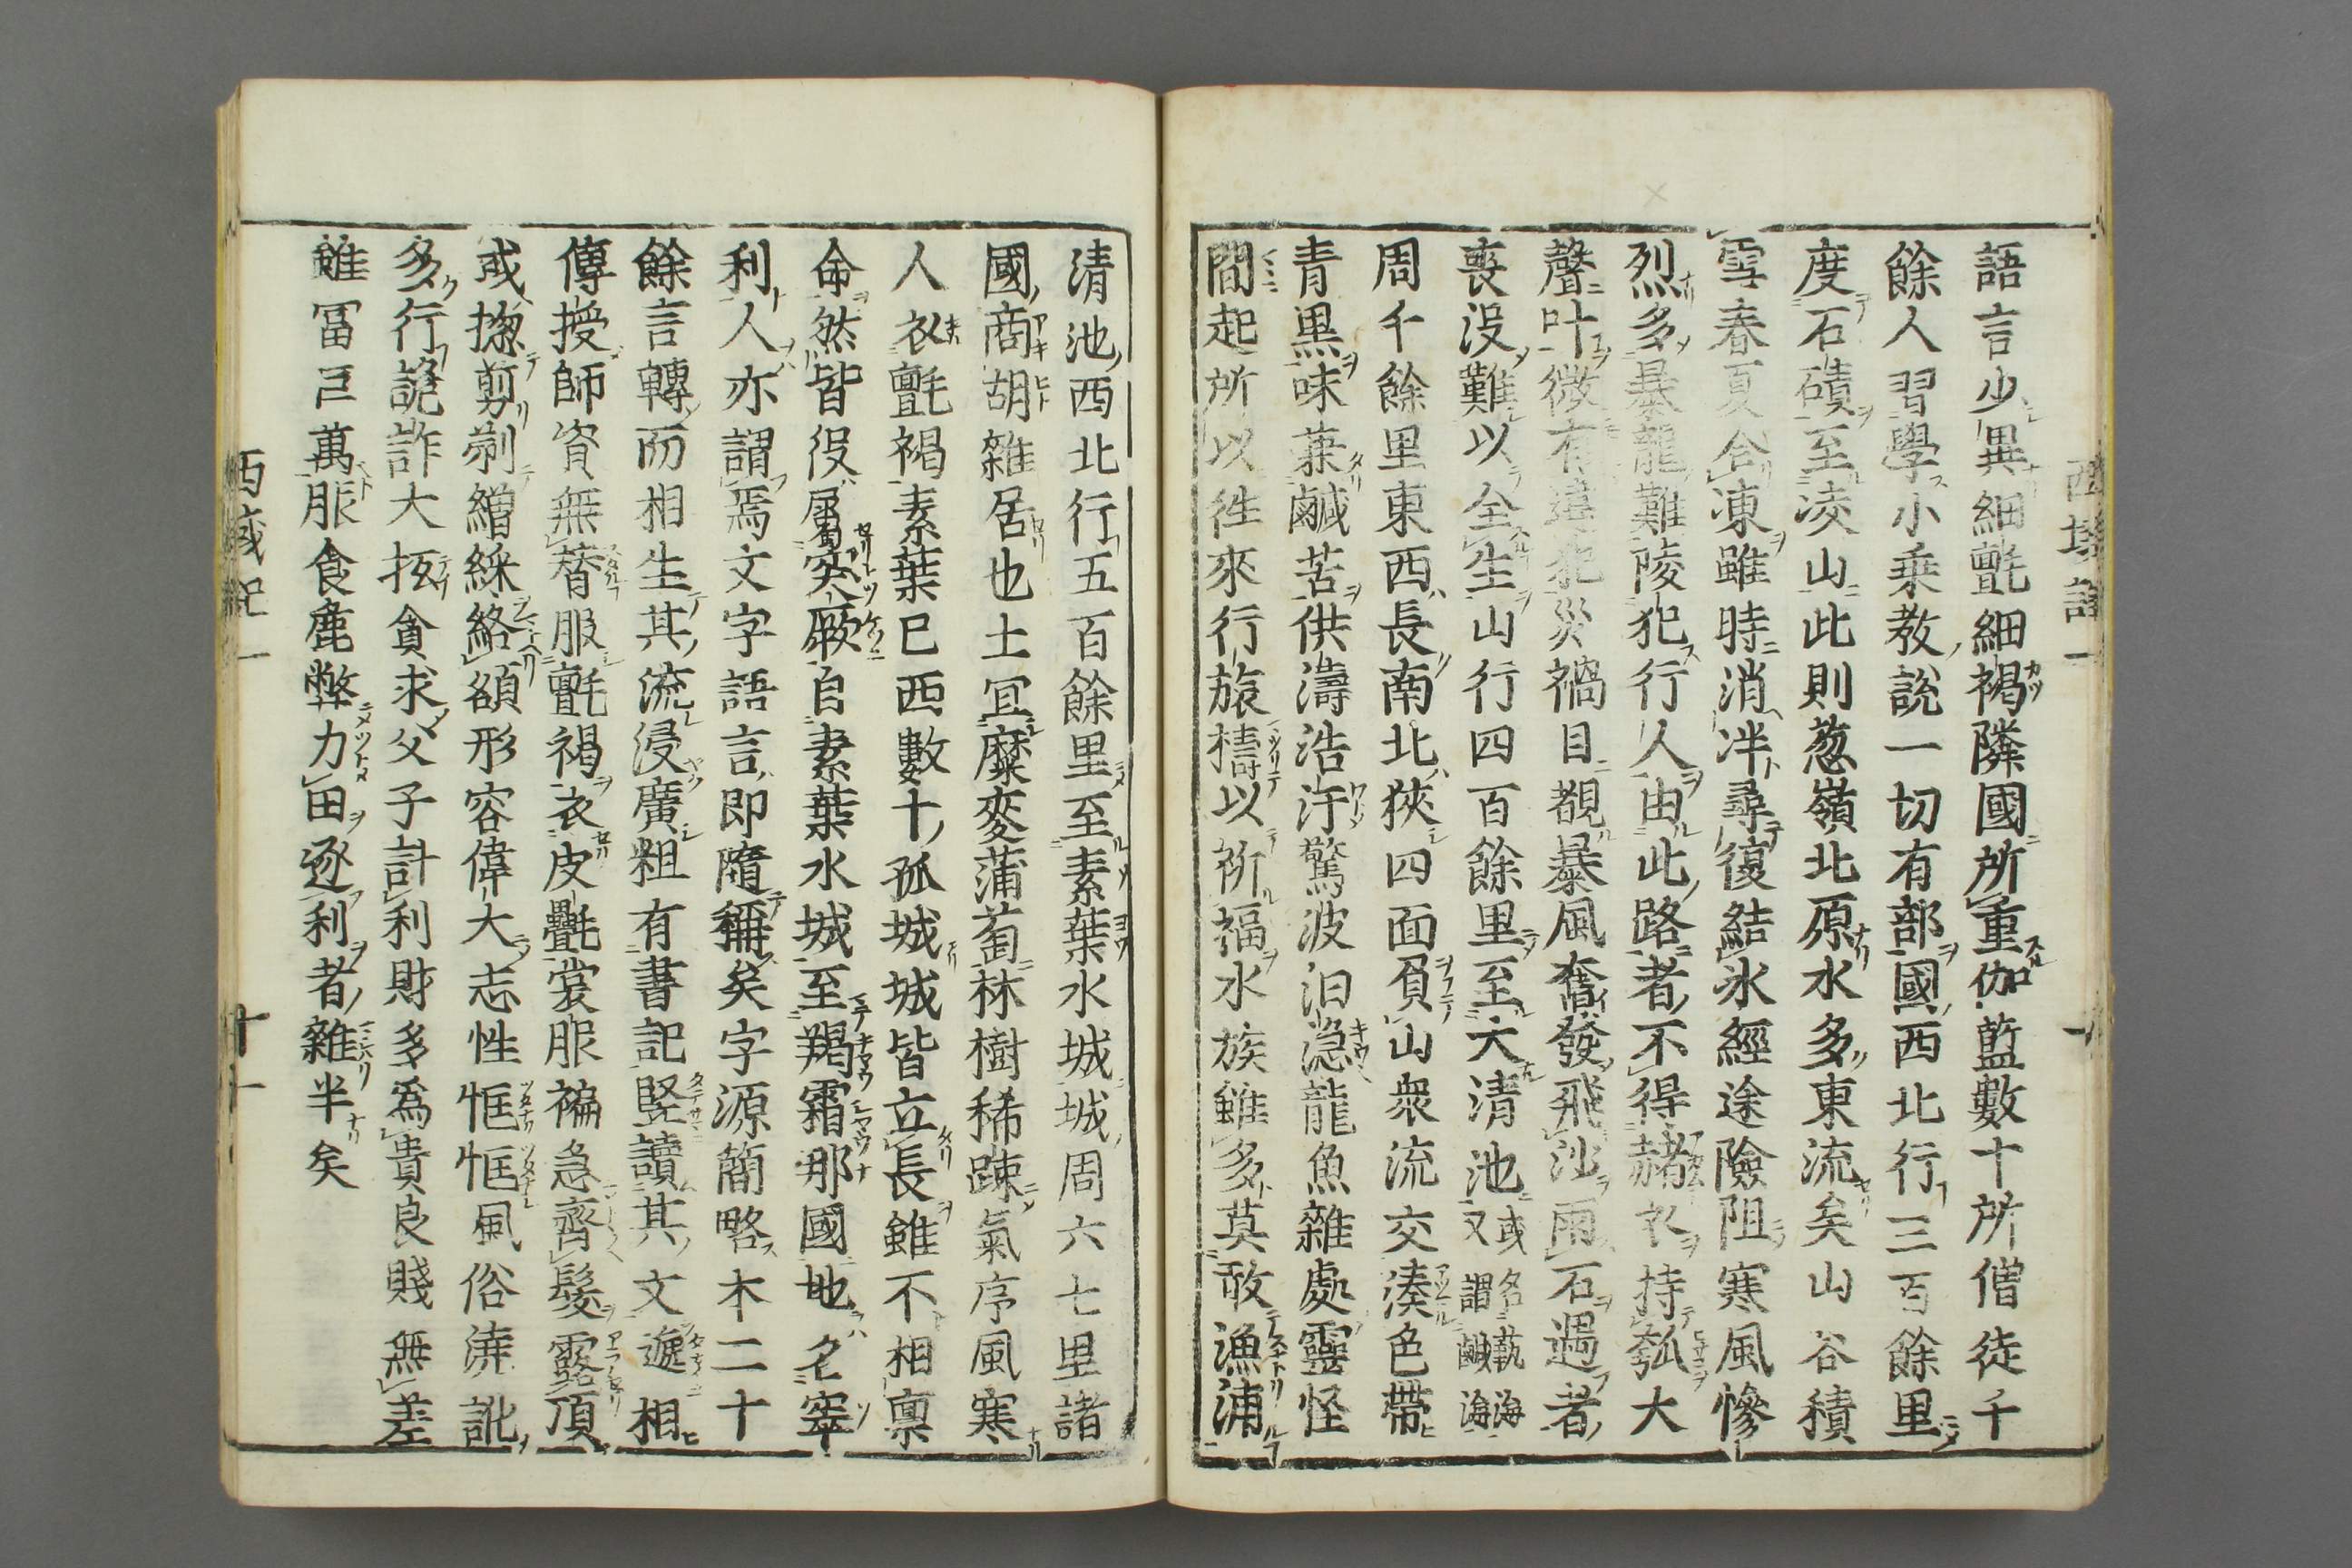 語言少異細氈細褐隣國所重伽藍數十所僧徒千
餘人習學小乗教說一切有部國西北行三百餘里
度石磧至凌山此則葱嶺北原水多東流矣山谷積
雪春夏合凍雖時消泮尋復結氷經途險阻寒風慘
烈多暴龍難陵犯行人由此路者不得赭衣持瓠大
聲叫微有違犯災禍目覩暴風奮發飛沙雨石遇者
喪没難以全生山行四百餘里至大清池或名𤍠海又謂鹹海
周千餘里東西長南北狹四面負山衆流交湊色帶
青黒味兼鹹苦供濤浩汗驚波汩㵫龍魚雜處靈怪
間起所以徃來行旅禱以祈福水族雖多莫敢漁浦
清池西北行五百餘里至素葉水城城周六七里諸
國商胡雜居也土冝糜麥蒲萄林樹稀踈氣序風寒
人衣氈褐素葉已西數十孤城城皆立長雖不相禀
命然皆役屬突厥自素葉水城至羯霜那國地名窣
利人亦謂焉文字語言即隨稱矣字源簡略本二十
餘言轉而相生其流浸廣粗有書記竪讀其文遞相
傳授師資無替服氈褐衣皮㲲裳服褊急齊髮露頂
或揔剪剃繒綵絡額形容偉大志性恇怯風俗澆訛
多行詭詐大抵貪求父子計利財多爲貴良賤無差
雖冨巨萬服食麁弊力田逐利者雜半矣
西域記一
十一